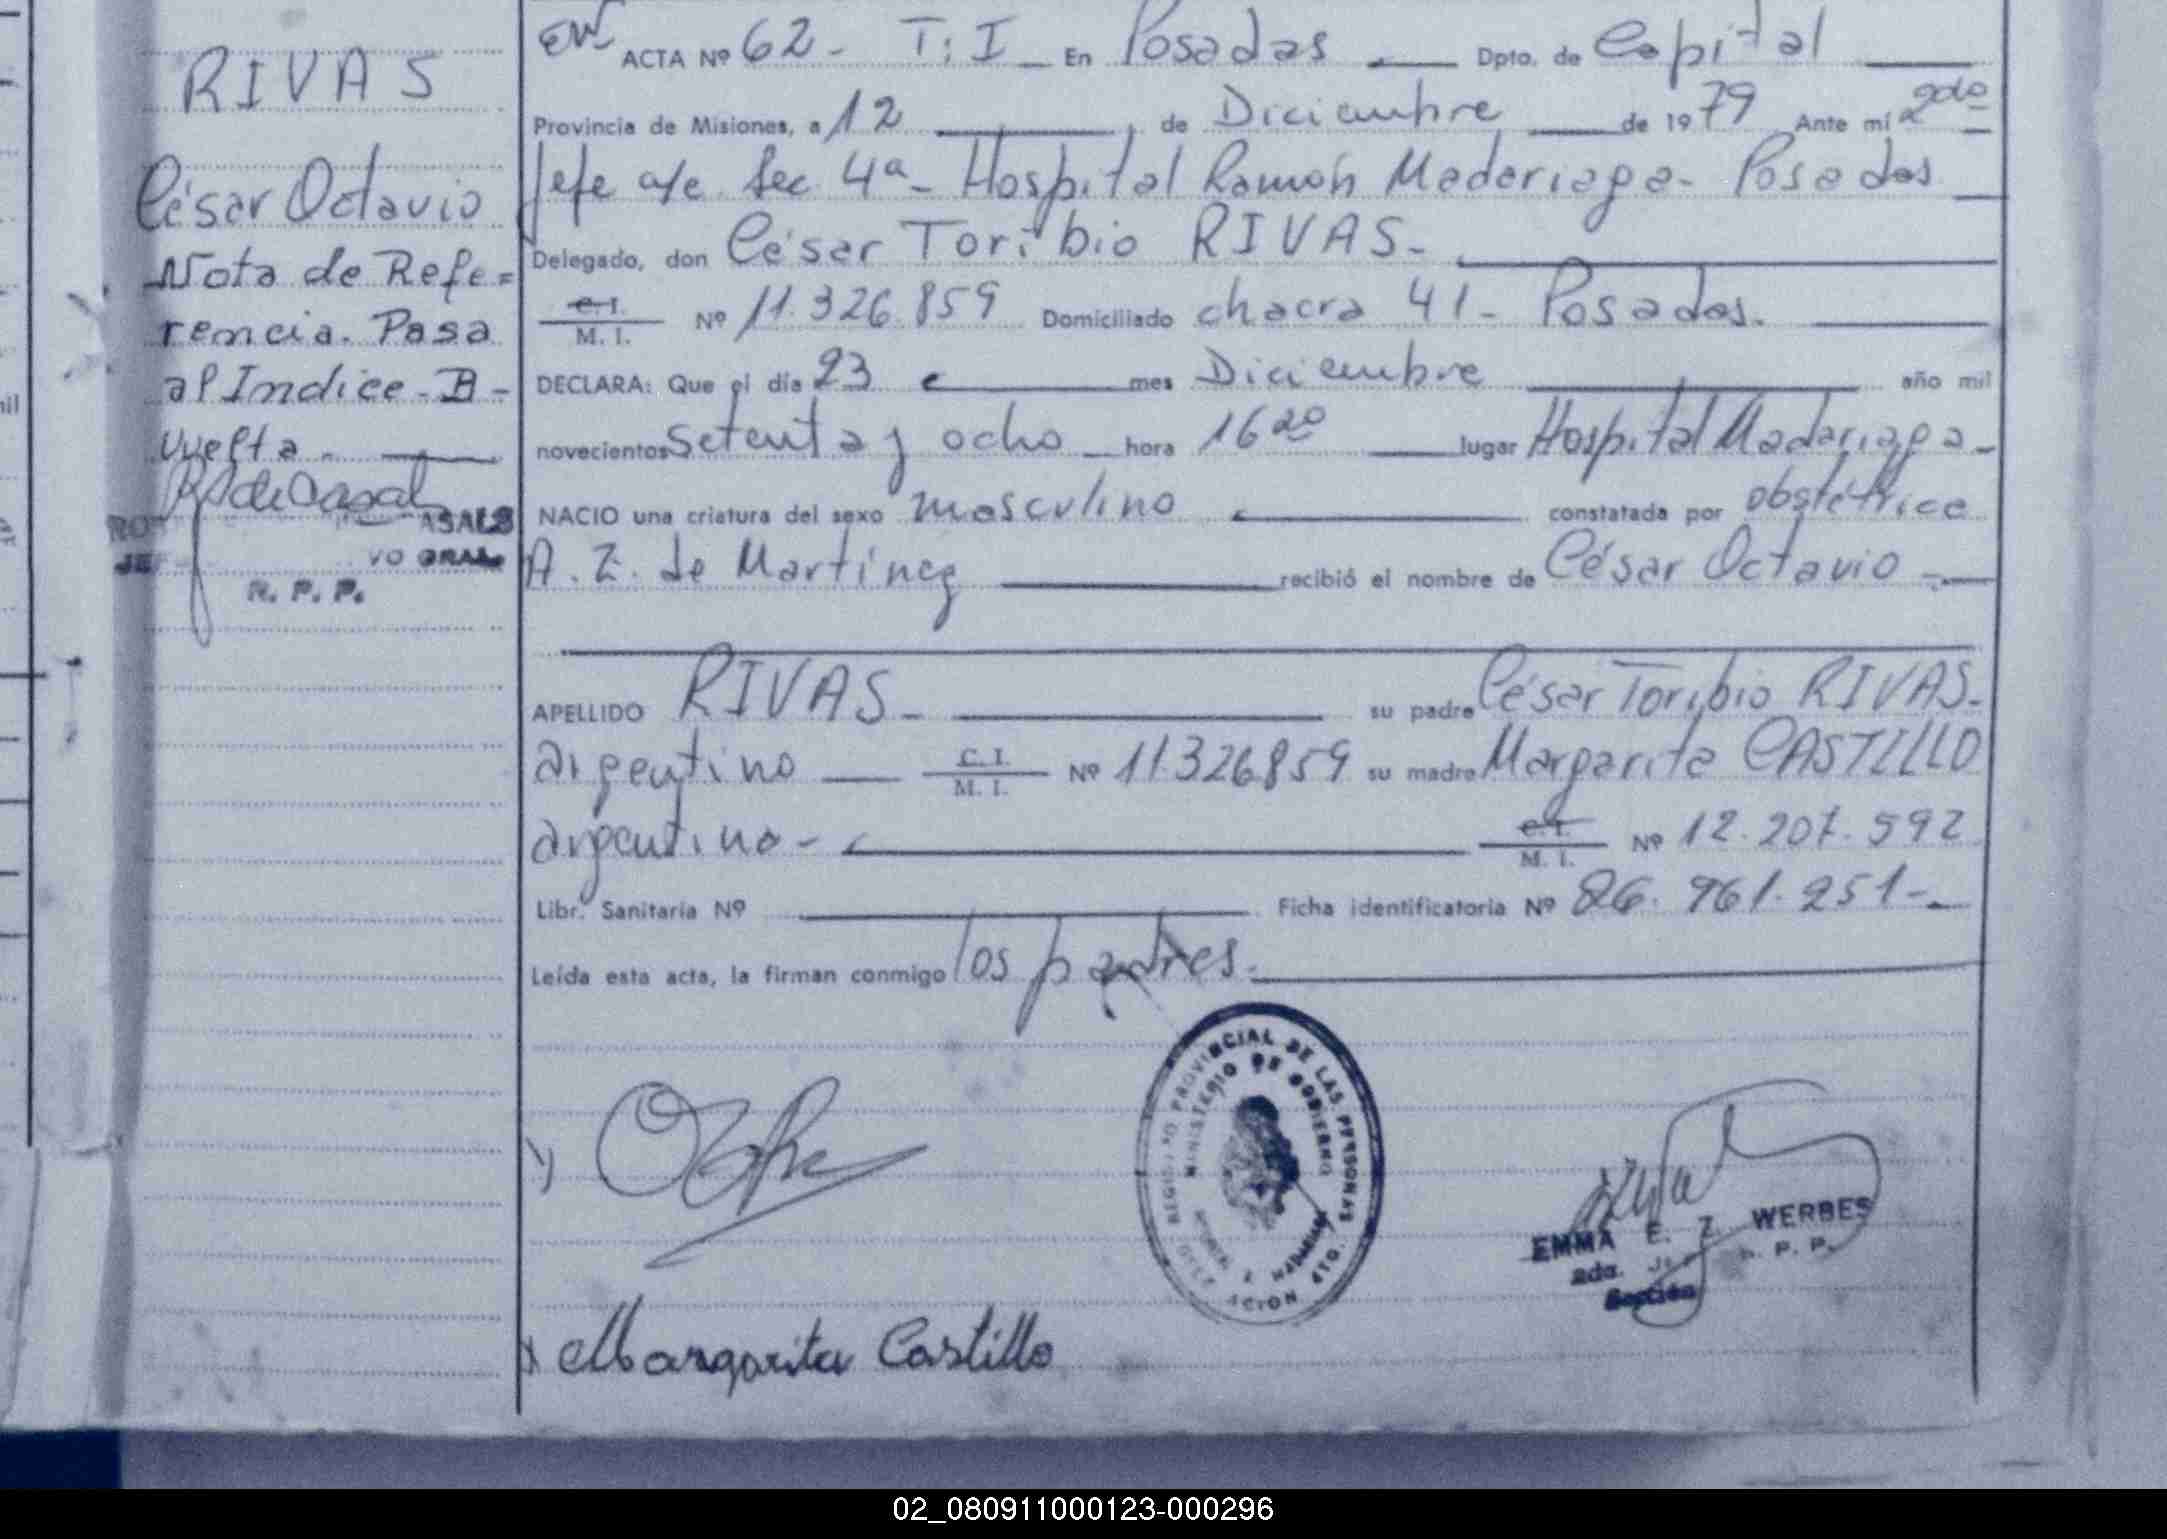 RIVAS
César Octavio
Nota de Refe=
rencia. Pasa
al Indice - B -
vuelta.
R. P. P.
ACTA Nº 62 - T: I En Posadas Dpto. de Capital
Provincia de Misiones, a 12 de Diciembre de 1979 Ante mí 2do
Jefe a/c Sec 4a - Hospital Ramón Madariaga - Posadas
Delegado, don César Toribio RIVAS -
C. I.
M. I. Nº 11.326.859 Domiciliado chacra 41 - Posadas.
DECLARA: Que el día 23 mes Diciembre año mil
novecientos setenta y ocho hora 16 20 lugar Hospital Madariaga -
NACIO una criatura del sexo masculino constatada por obstétrice
A. Z. de Martínez recibió el nombre de César Octavio -
APELLIDO RIVAS - su padre César Toribio RIVAS -
argentino C. I.
M. I. Nº 11326859 su madre Margarita CASTILLO
argentina - C. I.
M. I. Nº 12.207.592
Libr. Sanitaria Nº Ficha identificatoria Nº 26.961.251 -
Leída esta acta, la firman conmigo los padres -
REGISTRO PROVINCIAL DE LAS PERSONAS
MINISTERIO DE GOBIERNO
EMMA E. Z. WERBES
2da. R. P. P.
Sección
Margarita Castillo
02_080911000123-000296